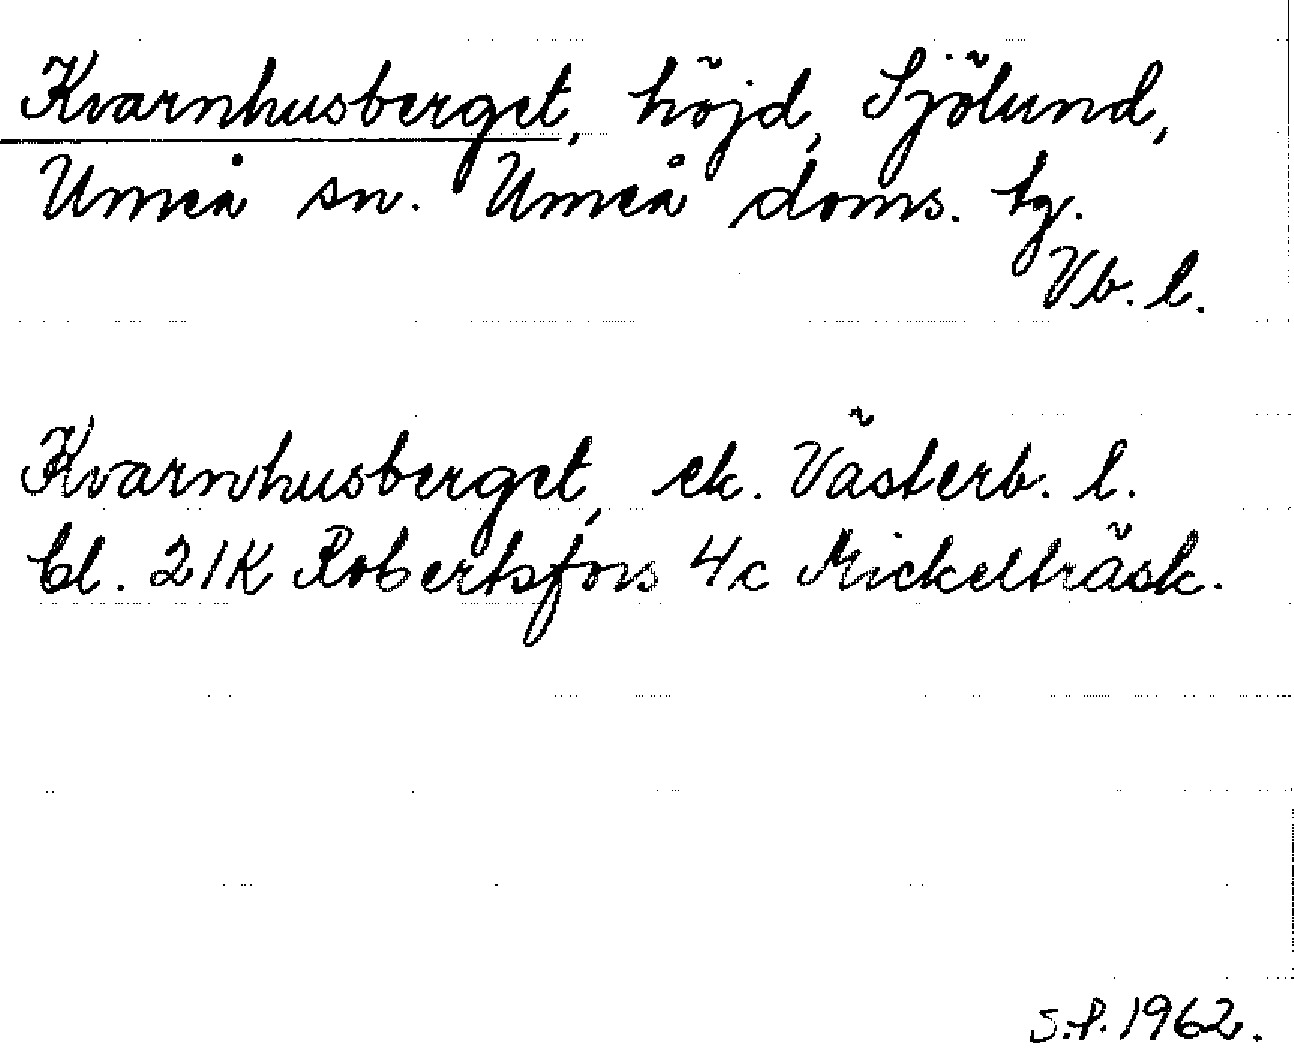 Kvarnhusberget, höjd, Sjölund,
Umeå sn. Umeå doms. tg.
Vb. l.
Kvarnhusberget, ek. Västerb. l.
bl. 21K Robertsfors 4c Mickelträsk.
S.P. 1962.